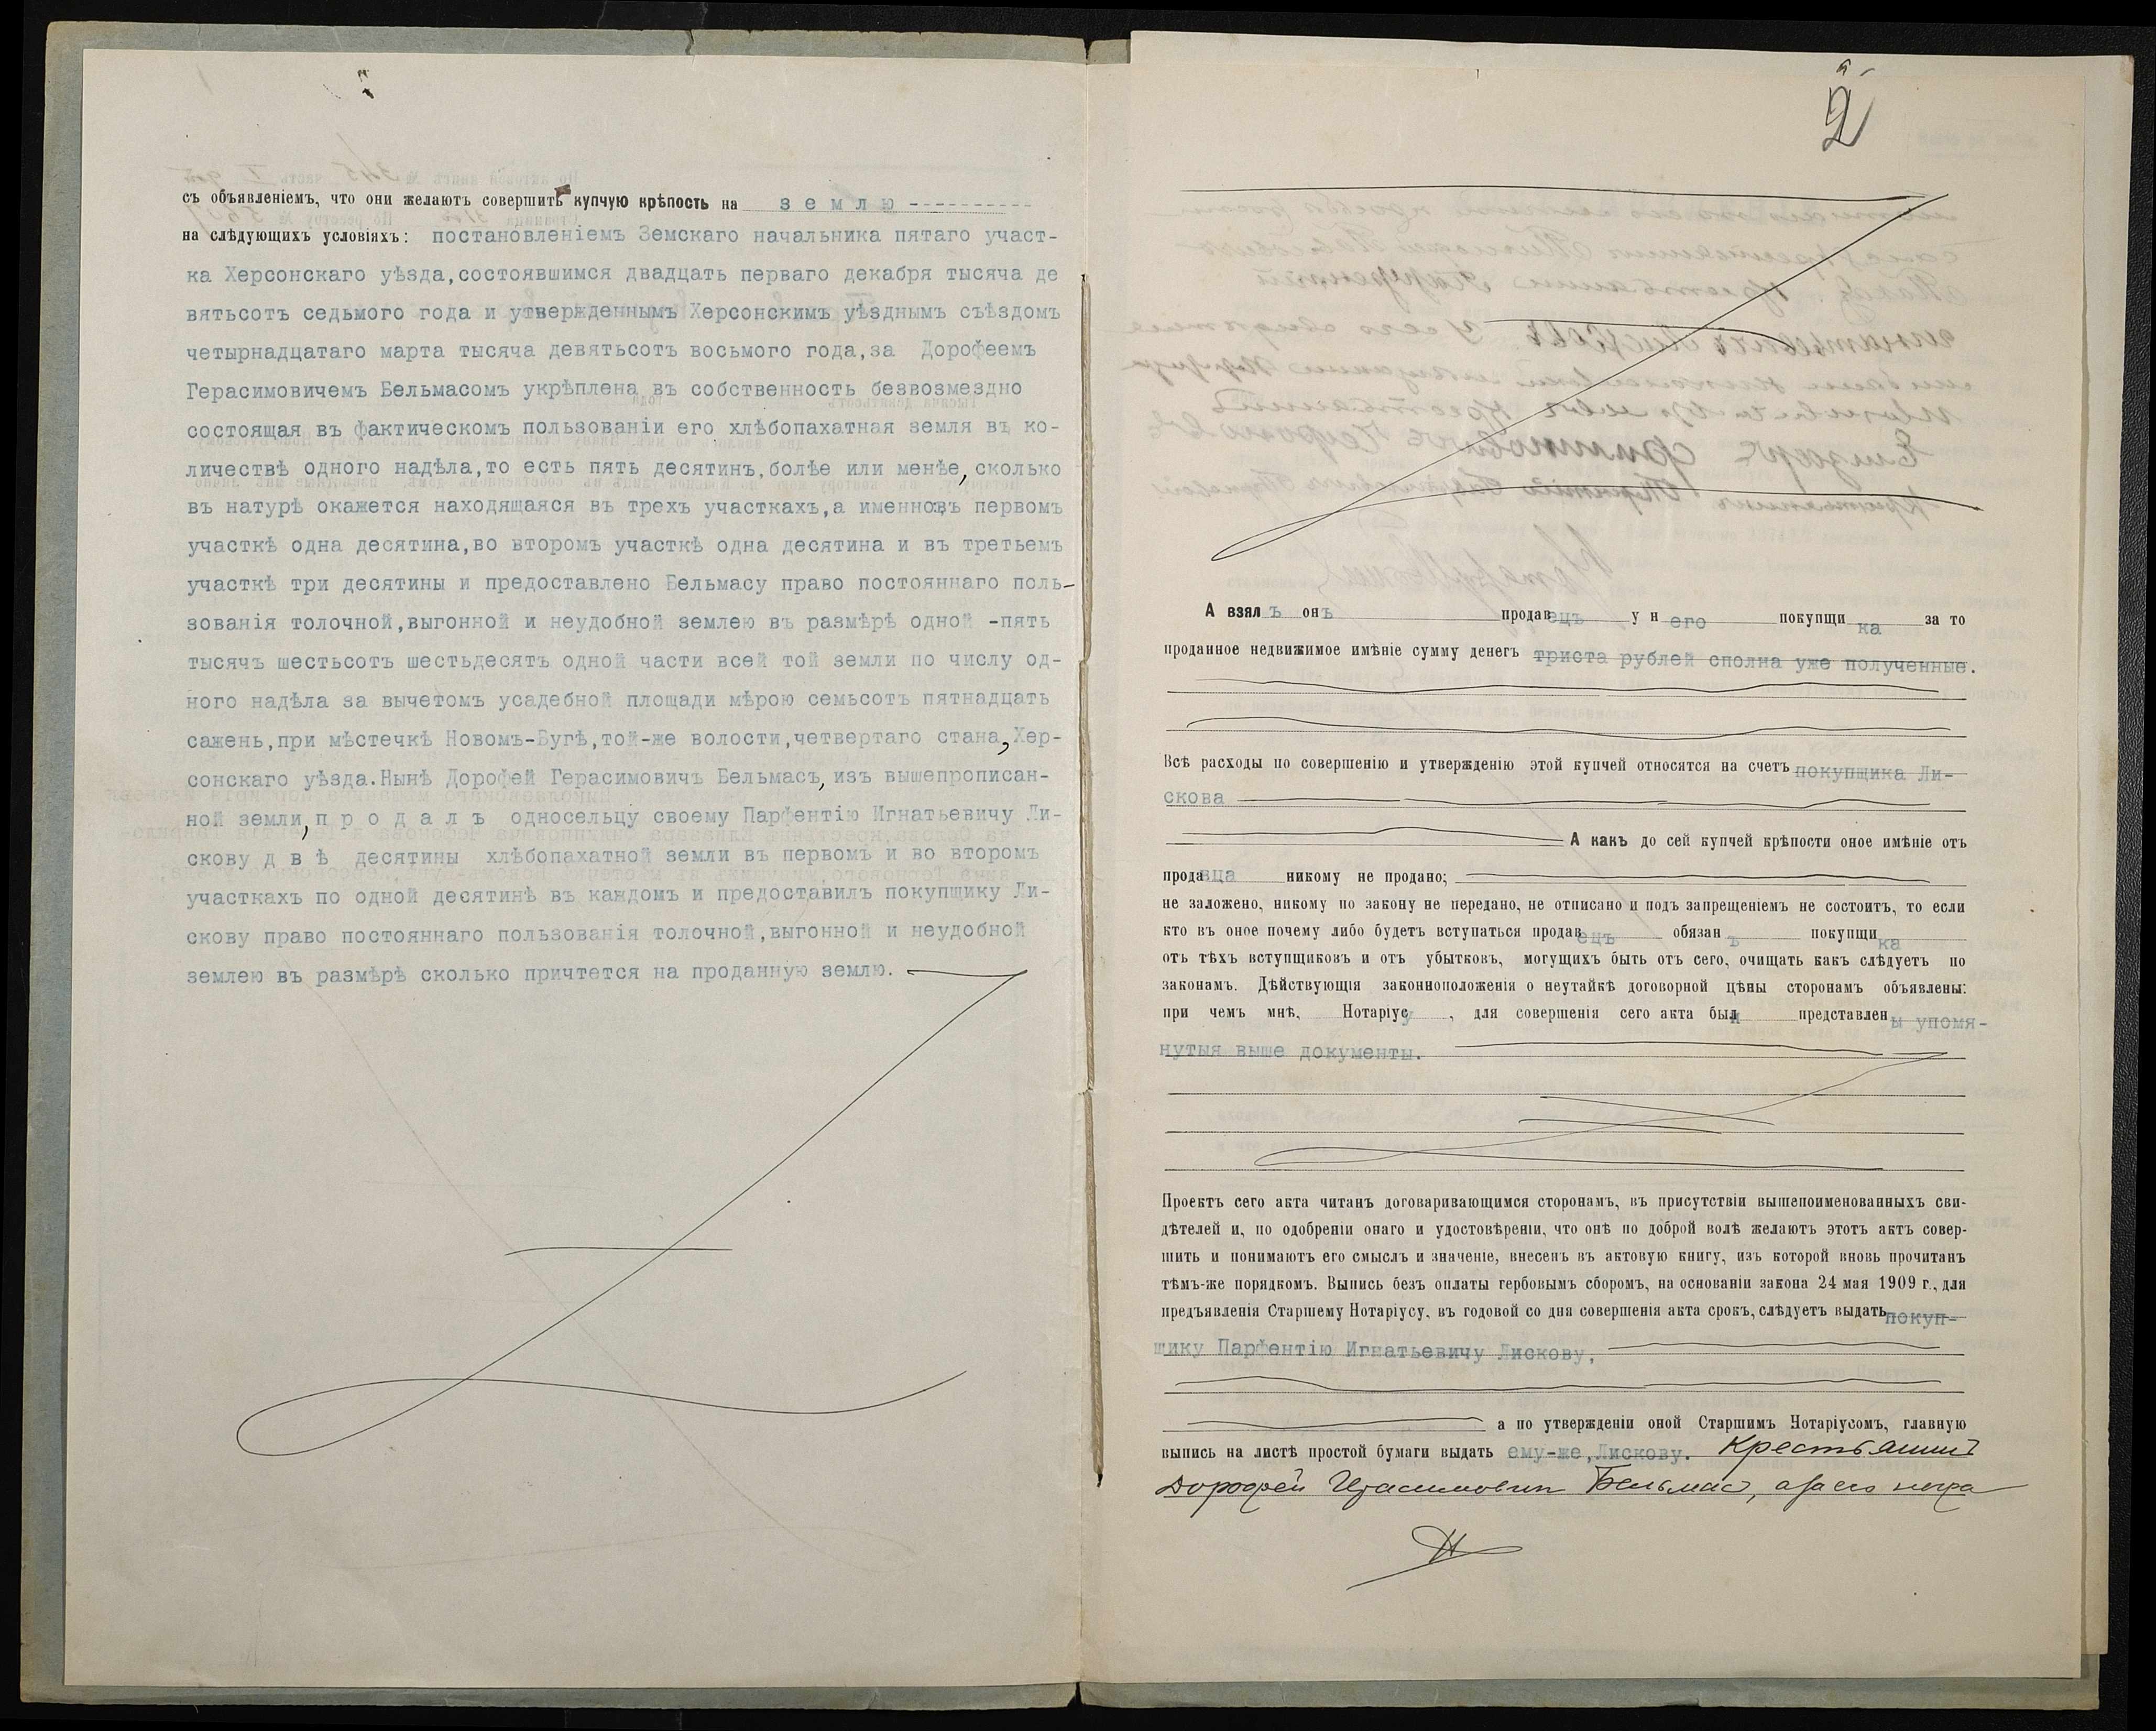 съ объявленіемъ, что они желаютъ совершить купчую крѣпость на землю ----------
на слѣдующихъ условіяхъ: постановленіемъ Земскаго начальника пятаго участ-
ка Херсонскаго уѣзда,состоявшимся двадцать перваго декабря тысяча де
вятьсотъ седьмого года и утвержденнымъ Херсонскимъ уѣзднымъ съѣздомъ
четырнадцатаго марта тысяча девятьсотъ восьмого года,за Дорофеемъ
Герасимовичемъ Бельмасомъ укрѣплена въ собственность безвозмездно
состоящая въ фактическомъ пользованіи его хлѣбопахатная земля въ ко-
личествѣ одного надѣла,то есть пять десятинъ,болѣе или менѣе, сколько
въ натурѣ окажется находящаяся въ трехъ участкахъ,а именно:въ первомъ
участкѣ одна десятина,во второмъ участкѣ одна десятина и въ третьемъ
участкѣ три десятины и предоставлено Бельмасу право постояннаго поль-
зованія толочной,выгонной и неудобной землею въ размѣрѣ одной -пять
тысячъ шестьсотъ шестьдесятъ одной части всей той земли по числу од-
ного надѣла за вычетомъ усадебной площади мѣрою семьсотъ пятнадцать
сажень,при мѣстечкѣ Новомъ-Бугѣ,той-же волости,четвертаго стана, Хер-
сонскаго уѣзда.Нынѣ Дорофей Герасимовичъ Бельмасъ, изъ вышепрописан-
ной земли, продалъ односельцу своему Парфентію Игнатьевичу Ли-
скову двѣ десятины хлѣбопахатной земли въ первомъ и во второмъ
участкахъ по одной десятинѣ въ каждомъ и предоставилъ покупщику Ли-
скову право постояннаго пользованія толочной,выгонной и неудобной
землею въ размѣрѣ сколько причтется на проданную землю.
2
А взялъ онъ продавецъ у него покупщика за то
проданное недвижимое имѣніе сумму денегъ триста рублей сполна уже полученные.
Всѣ расходы по совершенію и утвержденію этой купчей относятся на счетъ покупщика Ли-
скова
А какъ до сей купчей крѣпости оное имѣніе отъ
продавца никому не продано;
не заложено, никому по закону не передано, не отписано и подъ запрещеніемъ не состоитъ, то если
кто въ оное почему либо будетъ вступаться продавецъ обязанъ покупщика
отъ тѣхъ вступщиковъ и отъ убытковъ, могущихъ быть отъ сего, очищать какъ слѣдуетъ по
законамъ. Дѣйствующія законноположенія о неутайкѣ договорной цѣны сторонамъ объявлены:
при чемъ мнѣ, Нотаріусу, для совершенія сего акта были представлены упомя-
нутыя выше документы.
Проектъ сего акта читанъ договаривающимся сторонамъ, въ присутствіи вышепоименованныхъ сви-
дѣтелей и, по одобреніи онаго и удостовѣреніи, что онѣ по доброй волѣ желаютъ этотъ актъ совер-
шить и понимаютъ его смыслъ и значеніе, внесенъ въ актовую книгу, изъ которой вновь прочитанъ
тѣмъ-же порядкомъ. Выпись безъ оплаты гербовымъ сборомъ, на основаніи закона 24 мая 1909 г., для
предъявленія Старшему Нотаріусу, въ годовой со дня совершенія акта срокъ, слѣдуетъ выдать покуп-
щику Парфентію Игнатьевичу Лискову,
а по утвержденіи оной Старшимъ Нотаріусомъ, главную
выпись на листѣ простой бумаги выдать ему-же,Лискову. Крестьянинъ
Дорофей Герасимовичъ Бельмасъ, а за его